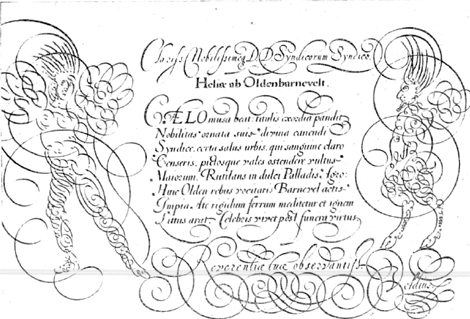 Clariss. Nobilissimoq D.D. Syndicorum Syndico
Heliæ ab Oldenbarnevelt.
CÆLO musa beat: titulis exordia pandit
Nobilitas ornata suis: divina canendi
Syndice, certa salus urbis, qui sanguine claro
Censeris, priscosque vales ostendere vultus
Maiorum. Rutilans in dulci Palladis
Hinc Olden rebus vocitaris Barnevel actis.
Impia Ate rigidum ferrum meditetur et ignem
Latius arat: Celebris vivet post funera virtus.
Reverentiæ tuæ observantiss.